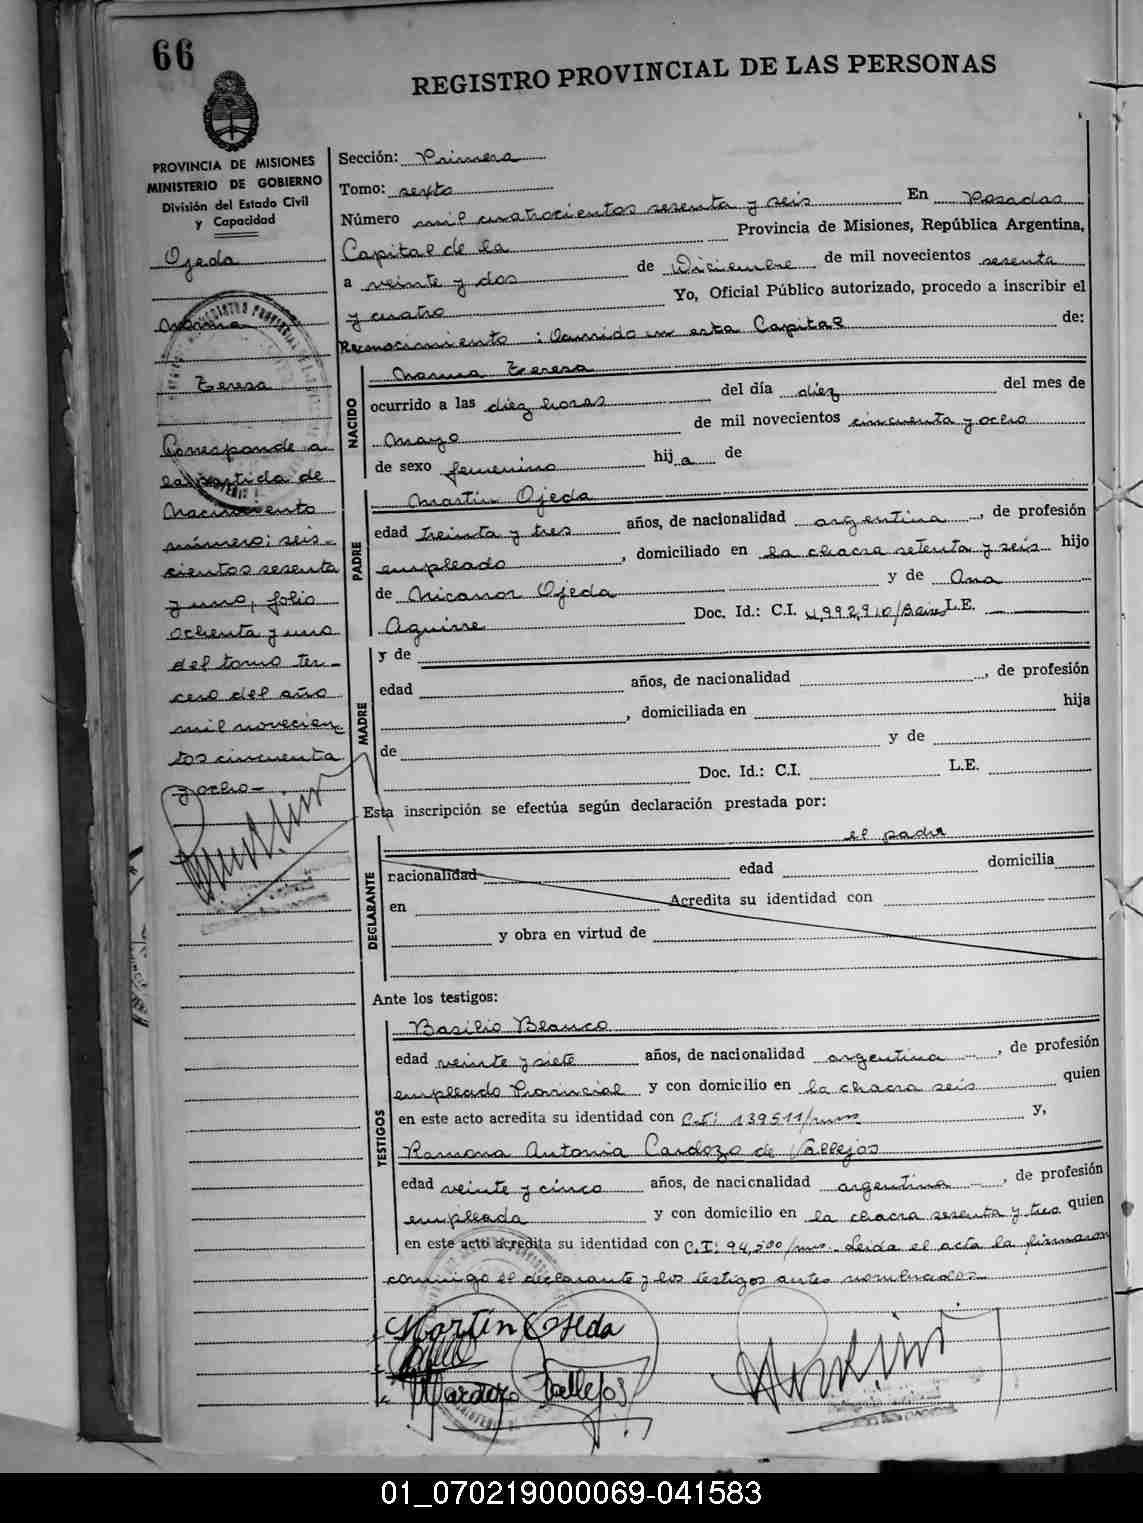 66
REGISTRO PROVINCIAL DE LAS PERSONAS
PROVINCIA DE MISIONES
MINISTERIO DE GOBIERNO
División del Estado Civil
y Capacidad
Ojeda
Norma
Teresa
Corresponde a
la partida de
Nacimiento
número: seis-
cientos sesenta
y uno, folio
ochenta y uno
del tomo ter-
cero del año
mil novecien-
tos cincuenta
y ocho-
Sección: Primera
Tomo: sexto
Número mil cuatrocientos sesenta y seis En Posadas
Capital de la Provincia de Misiones, República Argentina,
a veinte y dos de Diciembre de mil novecientos sesenta
y cuatro Yo, Oficial Público autorizado, procedo a inscribir el
Reconocimiento : Ocurrido en esta Capital de:
NACIDO
Norma Teresa
ocurrido a las diez horas del día diez del mes de
Mayo de mil novecientos cincuenta y ocho
de sexo femenino hija de
PADRE
Martín Ojeda
edad treinta y tres años, de nacionalidad argentina, de profesión
empleado, domiciliado en la chacra setenta y seis hijo
de Nicanor Ojeda y de Ana
Aguirre Doc. Id.: C.I. 4,992,910/Baires L.E.
MADRE
y de
edad años, de nacionalidad , de profesión
, domiciliada en hija
de y de
Doc. Id.: C.I. L.E.
Esta inscripción se efectúa según declaración prestada por:
el padre
DECLARANTE
nacionalidad edad domicilia
en Acredita su identidad con
y obra en virtud de
Ante los testigos:
TESTIGOS
Basilio Blanco
edad veinte y siete años, de nacionalidad argentina, de profesión
empleado Provincial y con domicilio en la chacra seis quien
en este acto acredita su identidad con C.I: 139511/mnes y,
Ramona Antonia Cardozo de Vallejos
edad veinte y cinco años, de nacionalidad argentina, de profesión
empleada y con domicilio en la chacra sesenta y tres quien
en este acto acredita su identidad con C.I: 94,500/mns. Leida el acta la firmaron
conmigo el declarante y los testigos antes nombrados
Martín Ojeda
Cardozo Vallejos
01_070219000069-041583